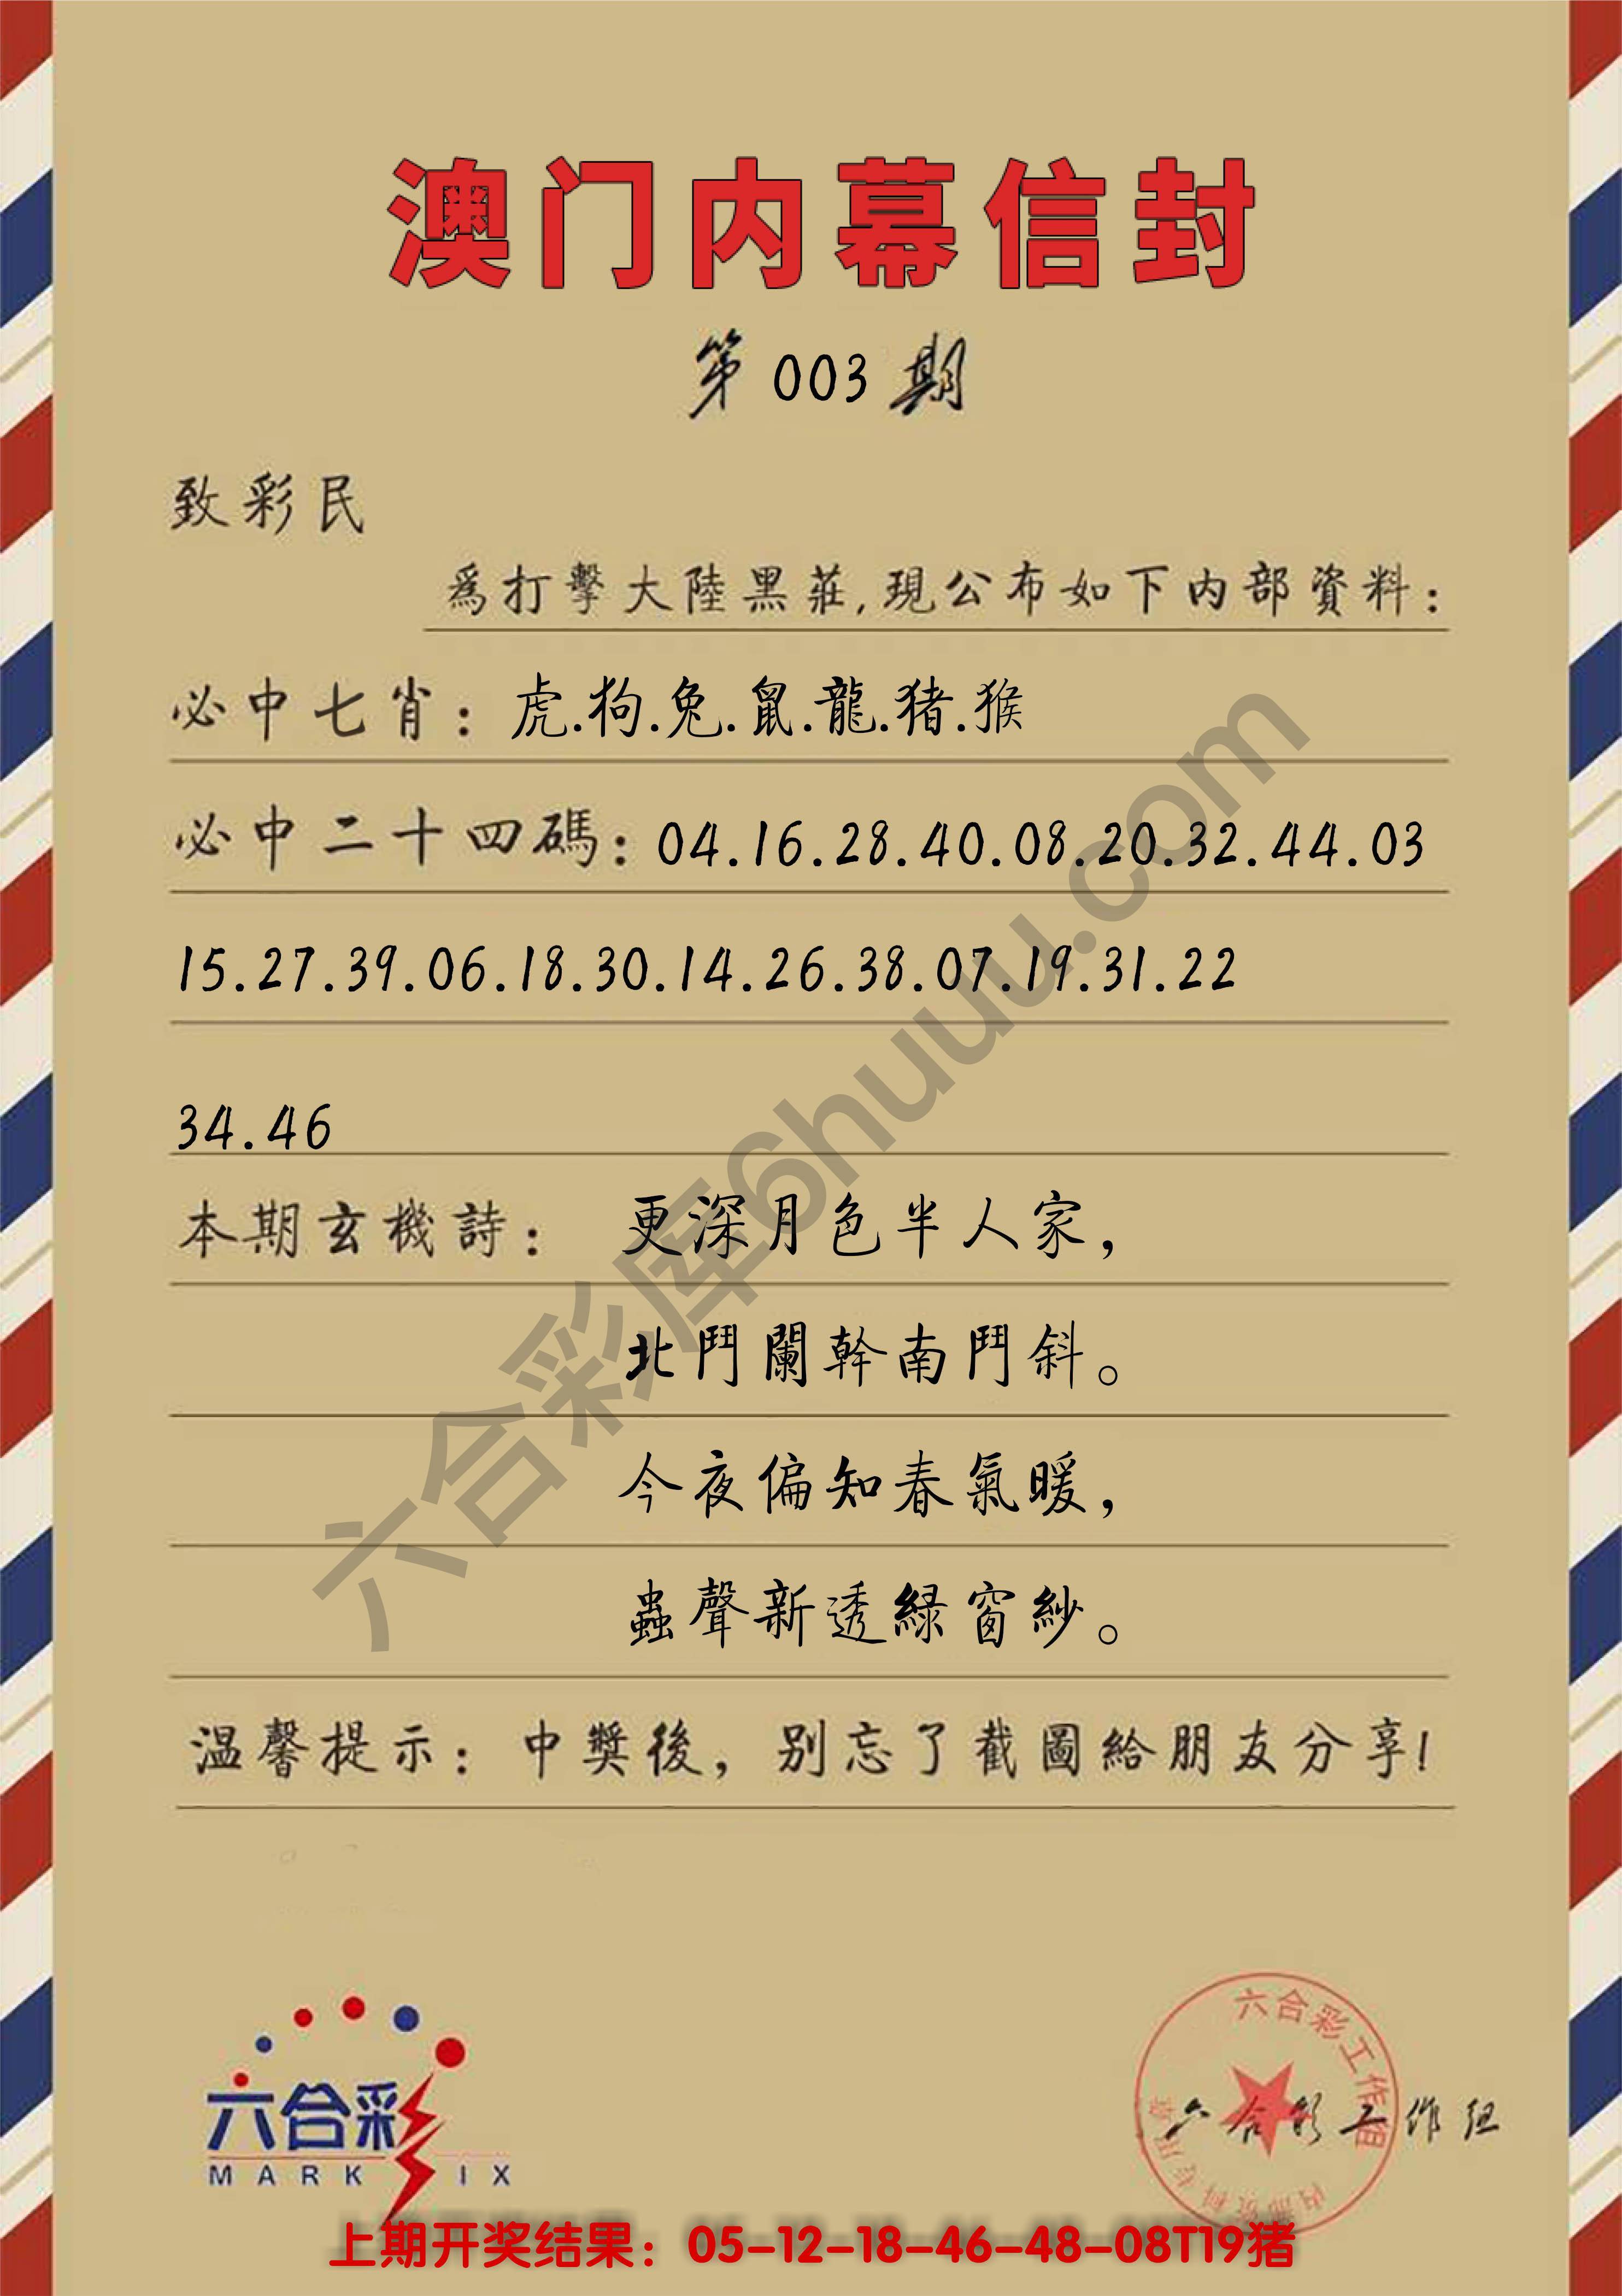 澳门内幕信封
第003期
致彩民
為打擊大陸黑莊,現公布如下内部資料:
必中七肖:虎.狗.兔.鼠.龍.猪.猴
必中二十四碼:04.16.28.40.08.20.32.44.03
15.27.39.06.18.30.14.26.38.07.19.31.22
34.46
本期玄機詩: 更深月色半人家,
北鬥闌幹南鬥斜。
今夜偏知春氣暖,
蟲聲新透緑窗紗。
温馨提示:中獎後,别忘了截圖給朋友分享!
六合彩库6huuu.com
六合彩
MARK IX
六合彩工作组
六合彩工作组
上期开奖结果:05-12-18-46-48-08T19猪